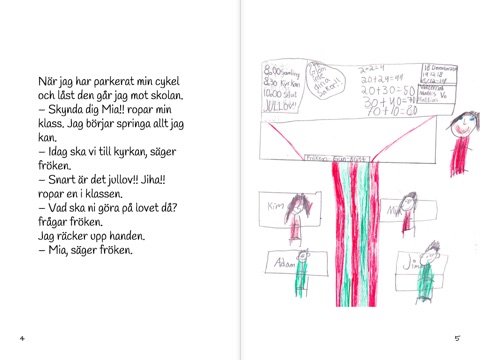 När jag har parkerat min cykel
och låst den går jag mot skolan.
– Skynda dig Mia!! ropar min
klass. Jag börjar springa allt jag
kan.
– Idag ska vi till kyrkan, säger
fröken.
– Snart är det jullov!! Jiha!!
ropar en i klassen.
– Vad ska ni göra på lovet då?
frågar fröken.
Jag räcker upp handen.
– Mia, säger fröken.
4
8,00 Samling
8,30 Kyrkan
10,00 Slut
JULLOV!
2-2=4
20+24=44
20+30=50
30+40=70
70+10=80
Fröken
Kim
Mia
Adam
Jim
5